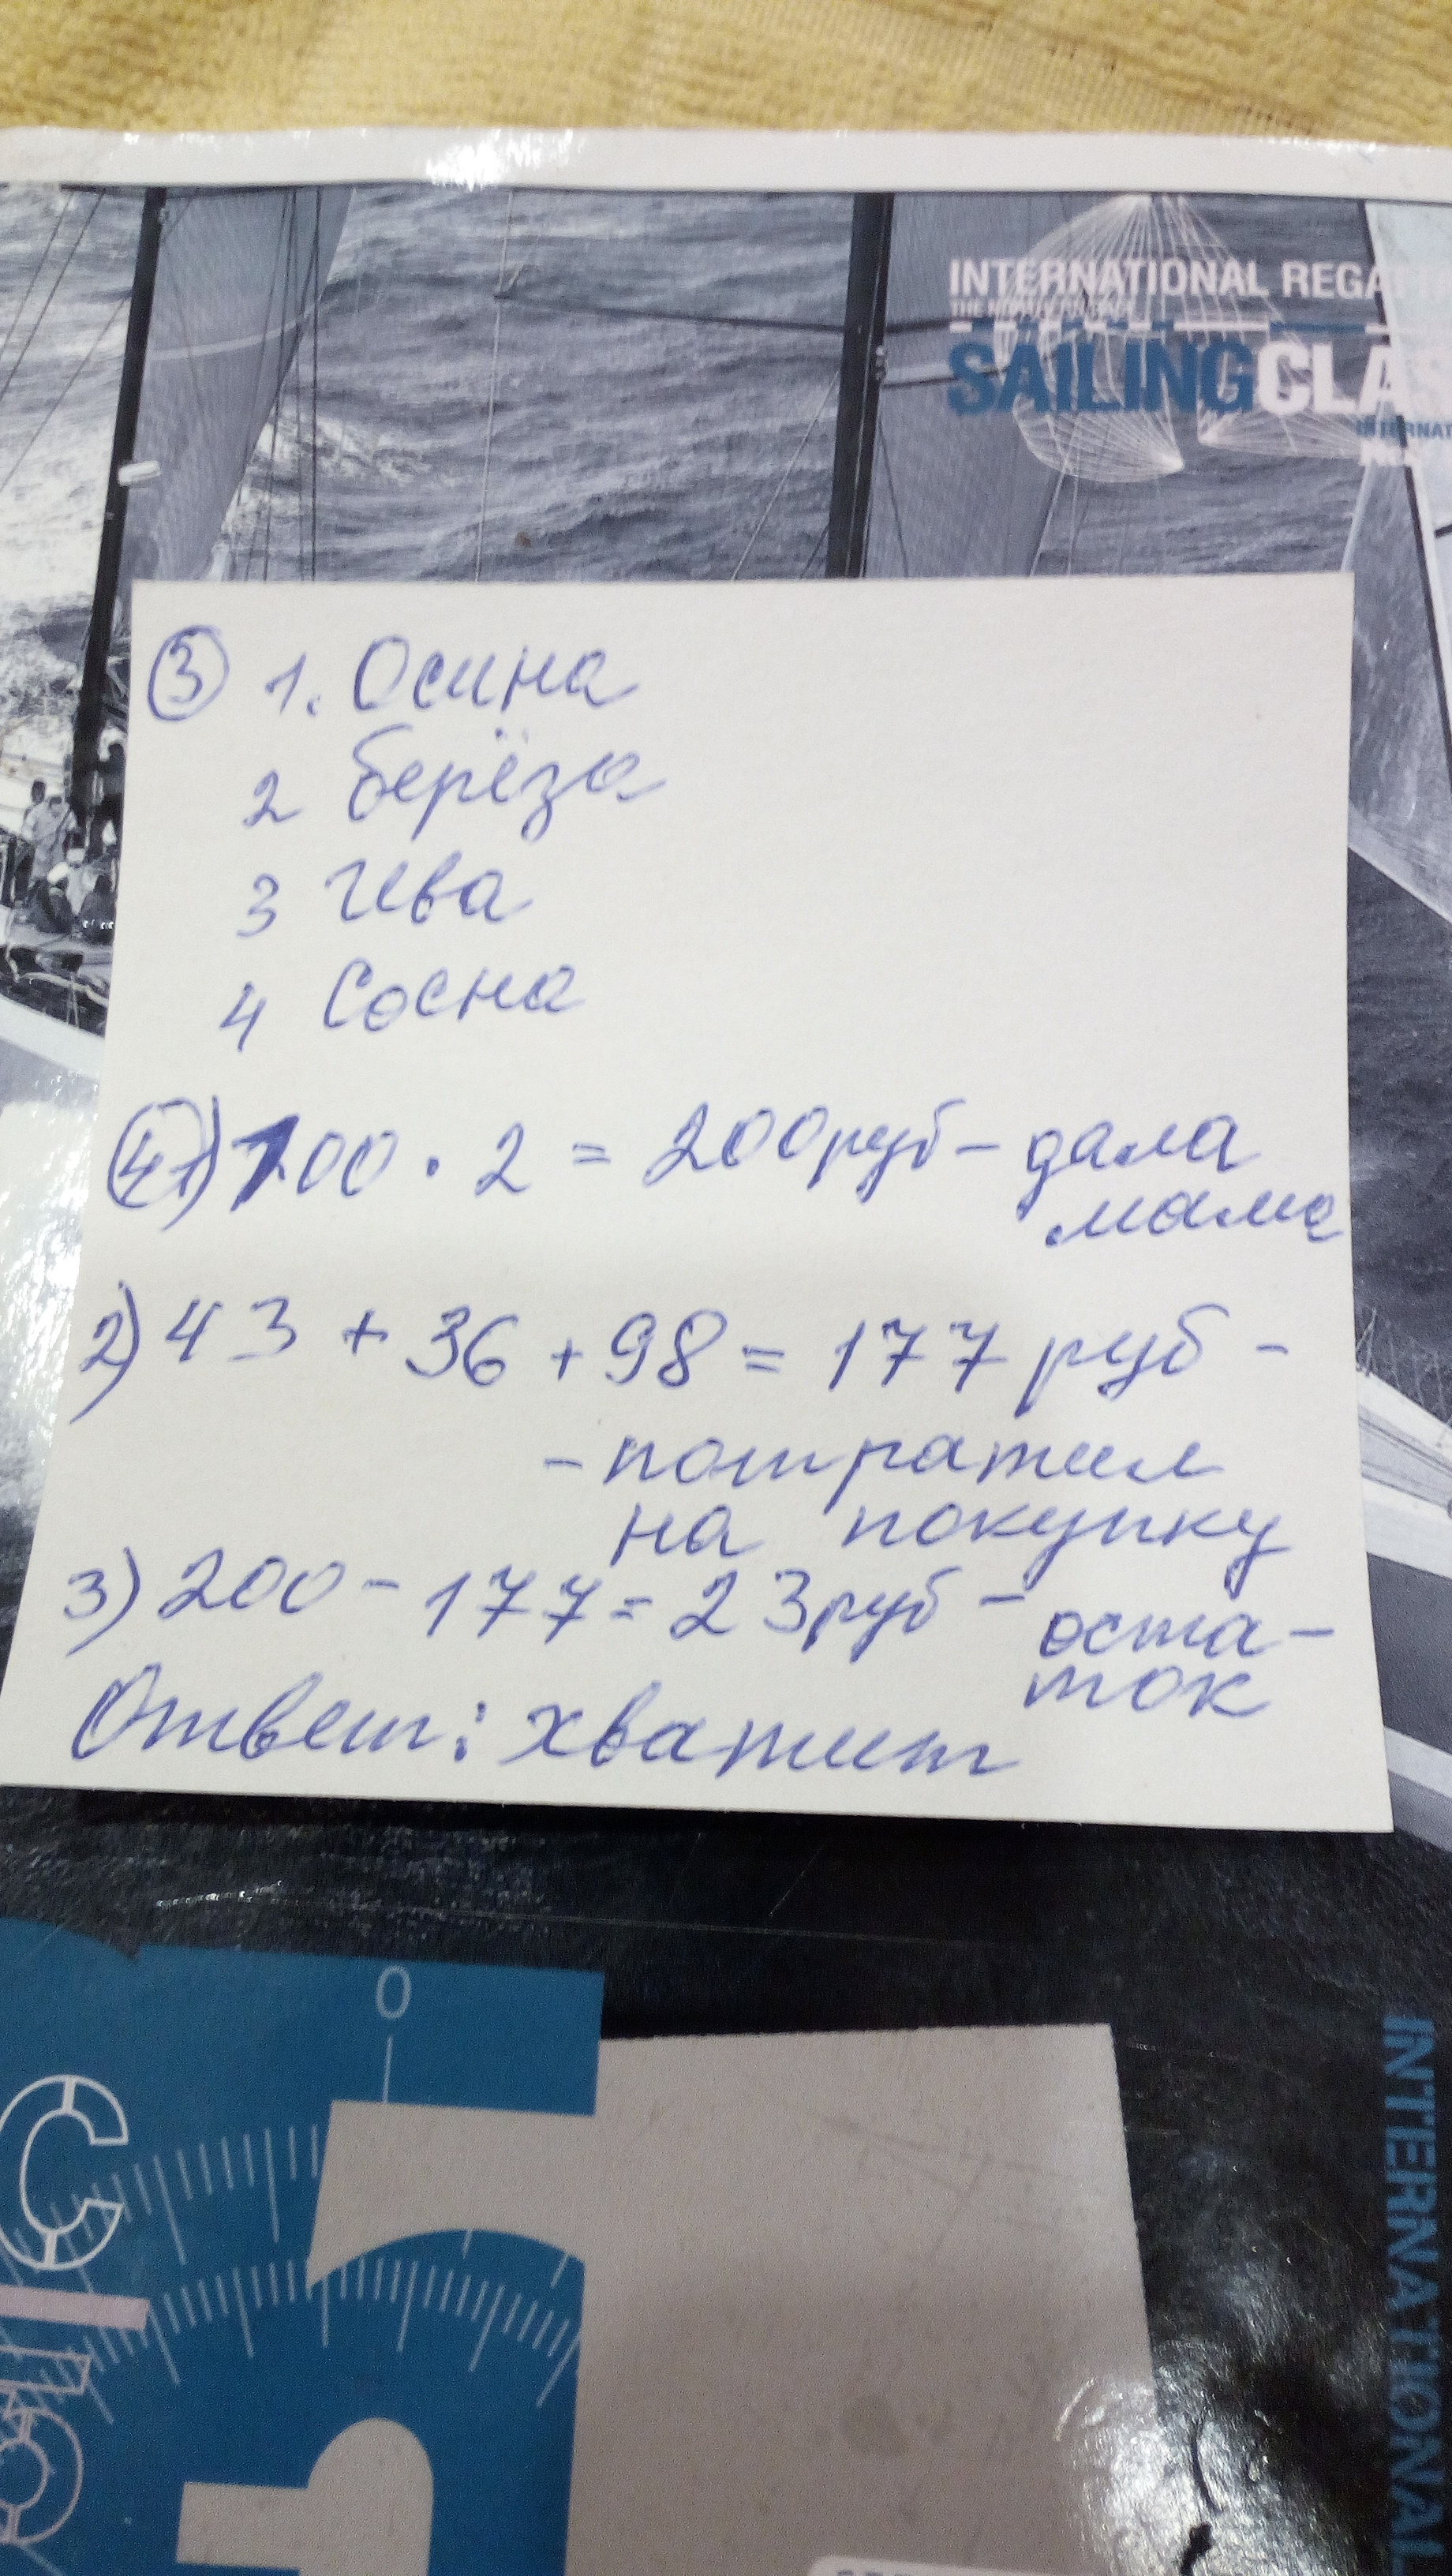 INTERNATIONAL REGA
SAILINGCLAS
INTERNAT
③ 1. Осина
2 берёза
3 ива
4 Сосна
④ 1) 100 · 2 = 200 руб – дала
мама
2) 43 + 36 + 98 = 177 руб –
– потратил
на покупку
3) 200 – 177 = 23 руб – оста–
ток
Ответ: хватит
0
INTERNATIONAL